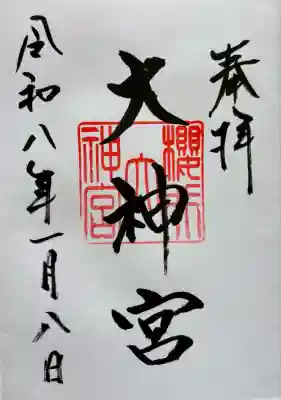 奉拝
大神宮
櫻
大
神宮
令和八年一月八日